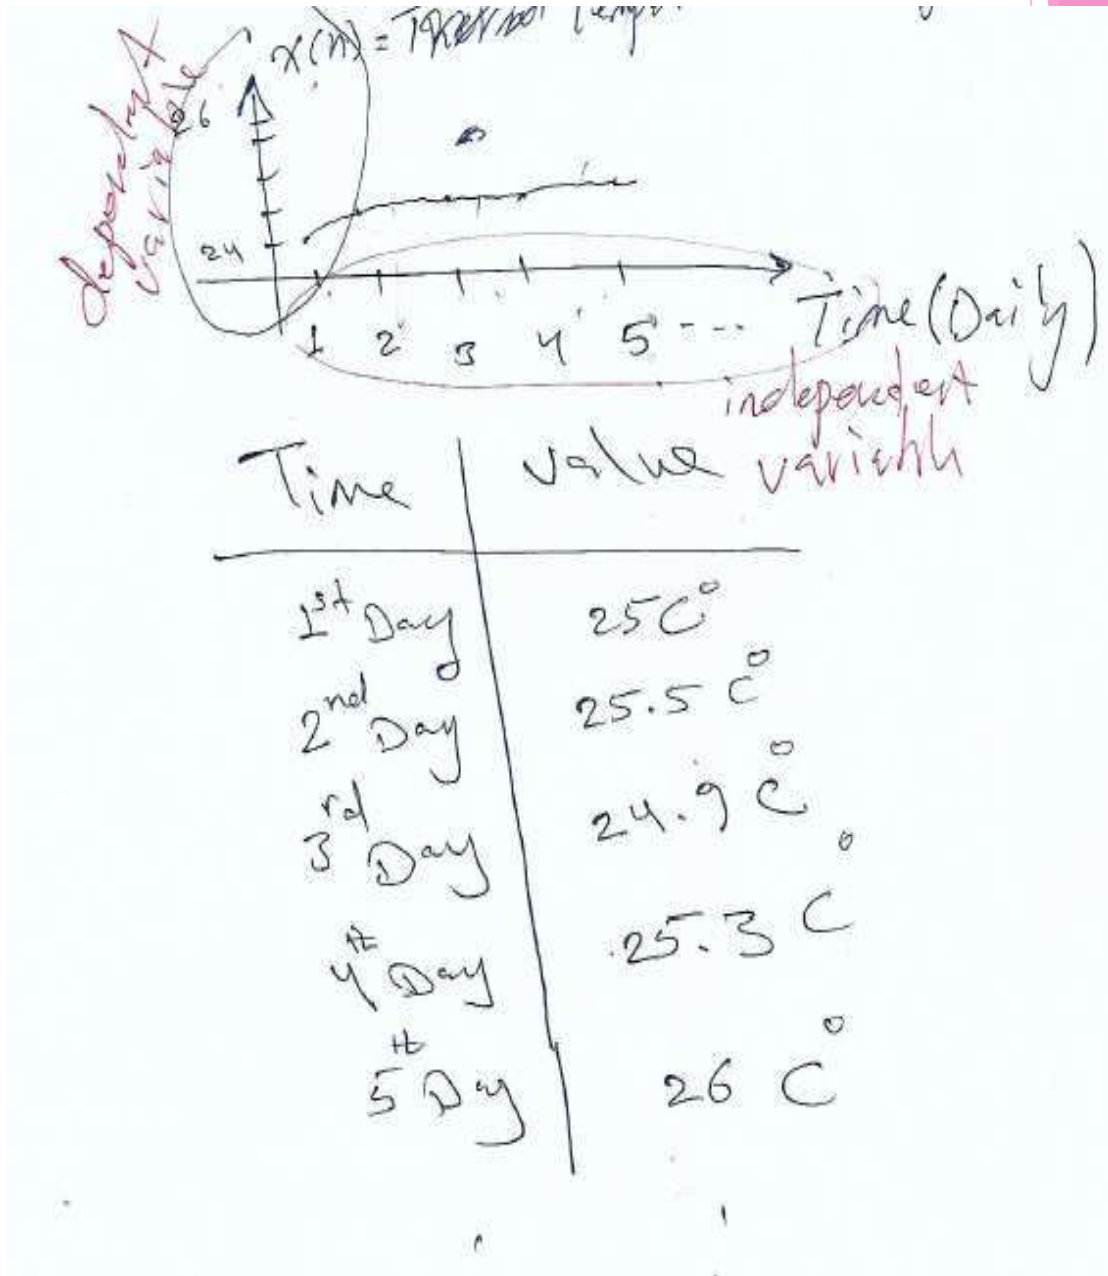 x(n) =
dependent
variable
26
24
1 2 3 4 5 ---- Time (Daily)
independent
variable
Time value
1st Day 25 C°
2nd Day 25.5 C°
3rd Day 24.9 C°
4th Day 25.3 C°
5th Day 26 C°